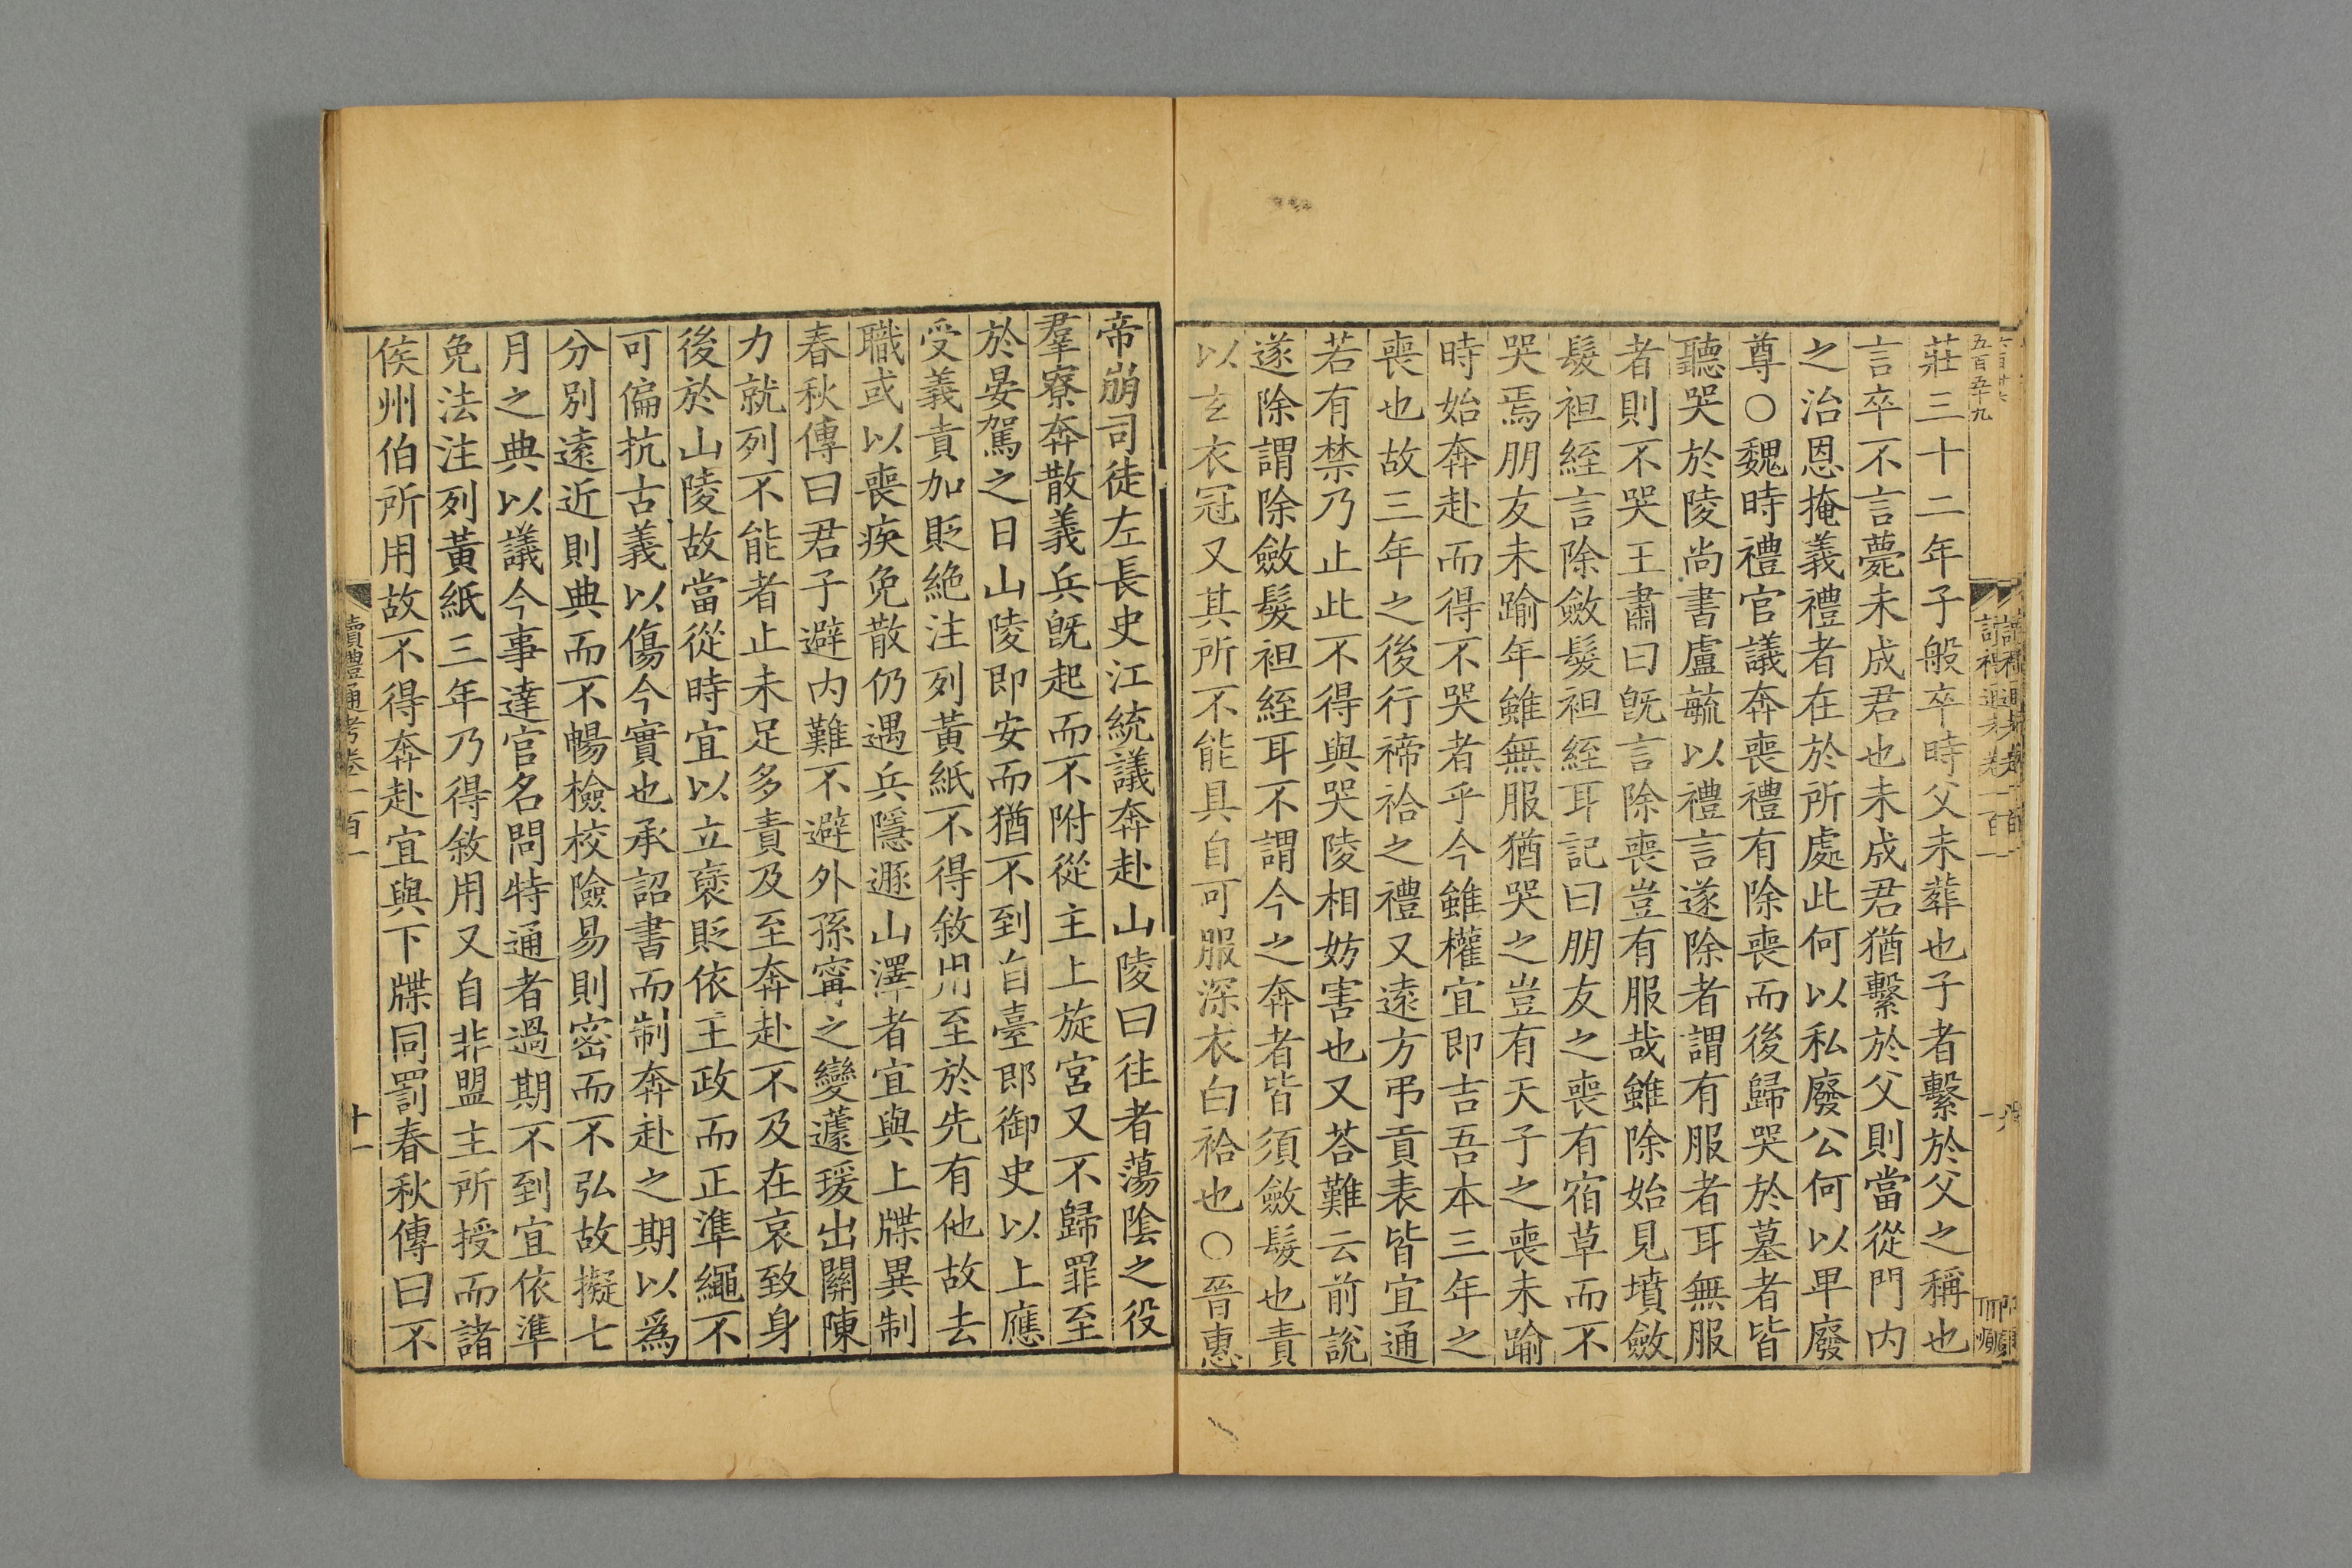 五百五十九
莊三十二年子般卒時父未葬也子者繫於父之稱也
言卒不言薨未成君也未成君猶繫於父則當從門內
之治恩掩義禮者在於所處此何以私廢公何以卑廢
尊○魏時禮官議奔喪禮有除喪而後歸哭於墓者皆
聽哭於陵尚書盧毓以禮言遂除者謂有服者耳無服
者則不哭王肅曰旣言除喪豈有服哉雖除始見墳斂
髮袒絰言除斂髮袒絰耳記曰朋友之喪有宿草而不
哭焉朋友未踰年雖無服猶哭之豈有天子之喪未踰
時始奔赴而得不哭者乎今雖權宜即吉吾本三年之
喪也故三年之後行禘祫之禮又遠方弔貢表皆宜通
若有禁乃止此不得與哭陵相妨害也又荅難云前說
遂除謂除斂髮袒絰耳不謂今之奔者皆須斂髮也責
以玄衣冠又其所不能具自可服深衣白袷也○晉惠
帝崩司徒左長史江統議奔赴山陵曰往者蕩陰之役
羣寮奔散義兵旣起而不附從主上旋宮又不歸罪至
於晏駕之日山陵即安而猶不到自臺郎御史以上應
受義責加貶絶注列黃紙不得敘用至於先有他故去
職或以喪疾免散仍遇兵隱遯山澤者宜與上牒異制
春秋傳曰君子避內難不避外孫甯之變蘧瑗出關陳
力就列不能者止未足多責及至奔赴不及在哀致身
後於山陵故當從時宜以立裦貶依王政而正準繩不
可偏抗古義以傷今實也承詔書而制奔赴之期以爲
分別遠近則典而不暢檢校險易則密而不弘故擬七
月之典以議今事達官名問特通者過期不到宜依準
免法注列黃紙三年乃得敘用又自非盟主所授而諸
侯州伯所用故不得奔赴宜與下牒同罰春秋傳曰不
讀禮通考卷一百一
十一